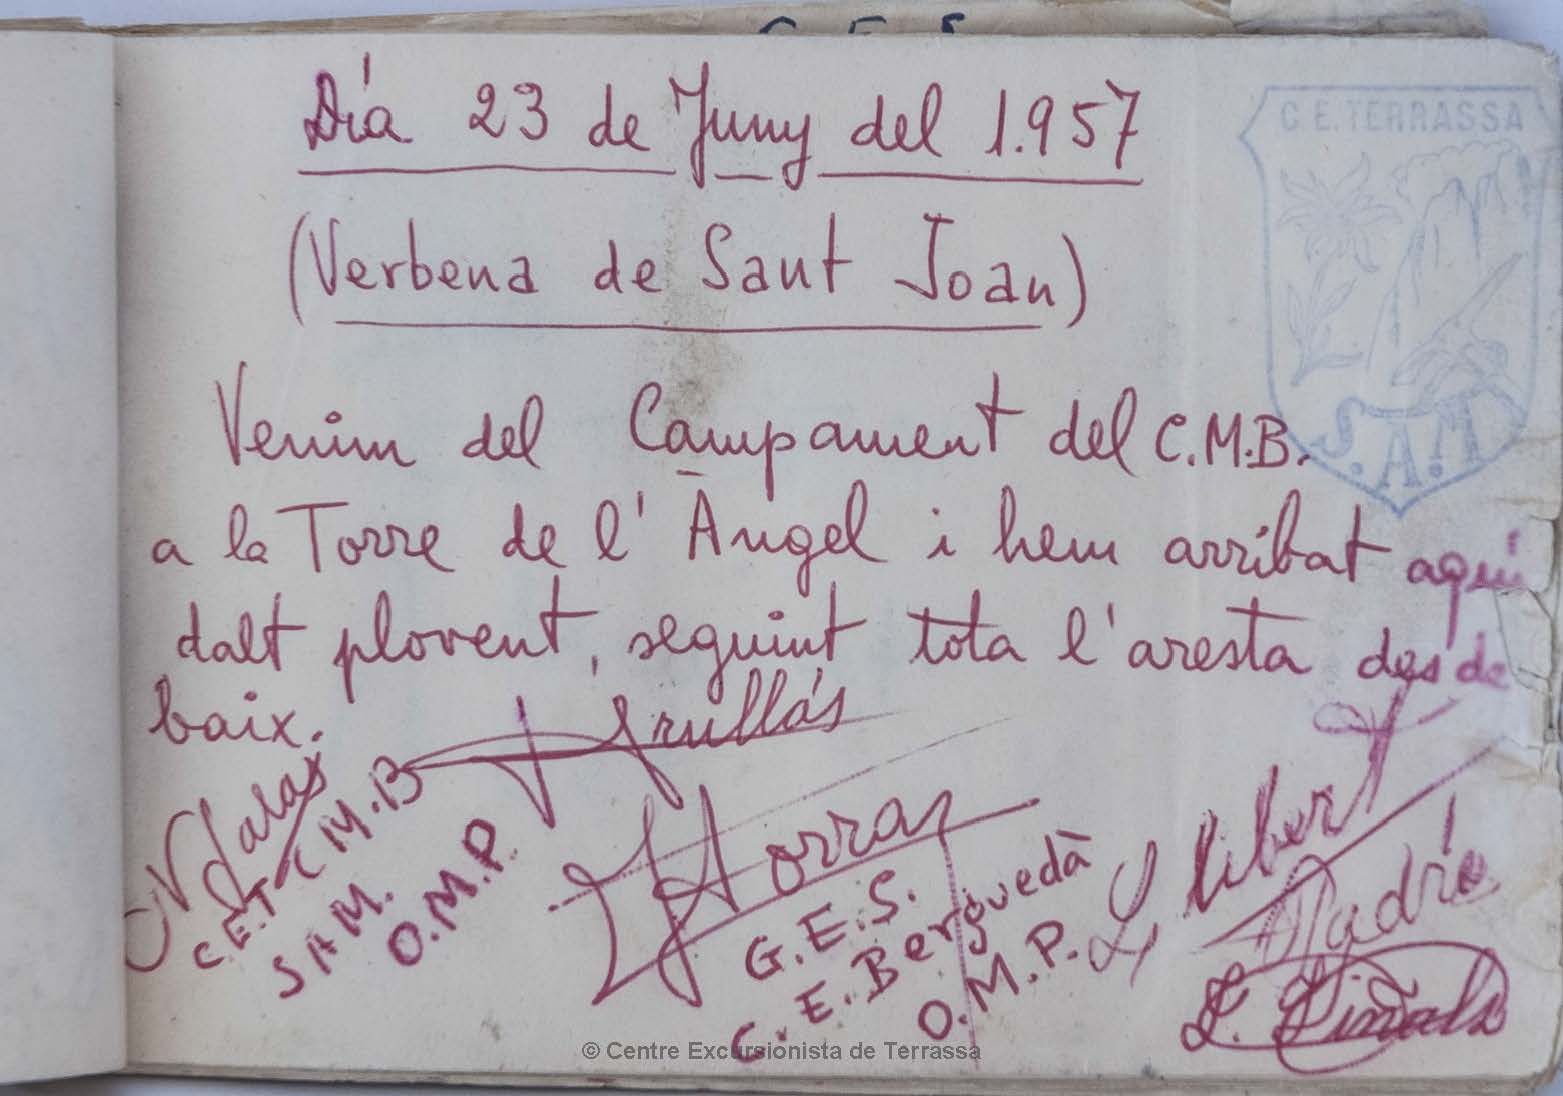 G E S
Día 23 de Juny del 1.957
(Verbena de Sant Joan)
C E. TERRASSA
S.A.M
Venim del Campament del C.M.B.
a la Torre de l'Àngel i hem arribat aquí
dalt plovent, seguint tota l'aresta desde
baix.
Grullás
C.E.T C M.B
S A M.
O.M.P.
Torras
G.E.S.
C. E. Berguedà
O.M.P.
Llibert
Padró
© Centre Excursionista de Terrassa